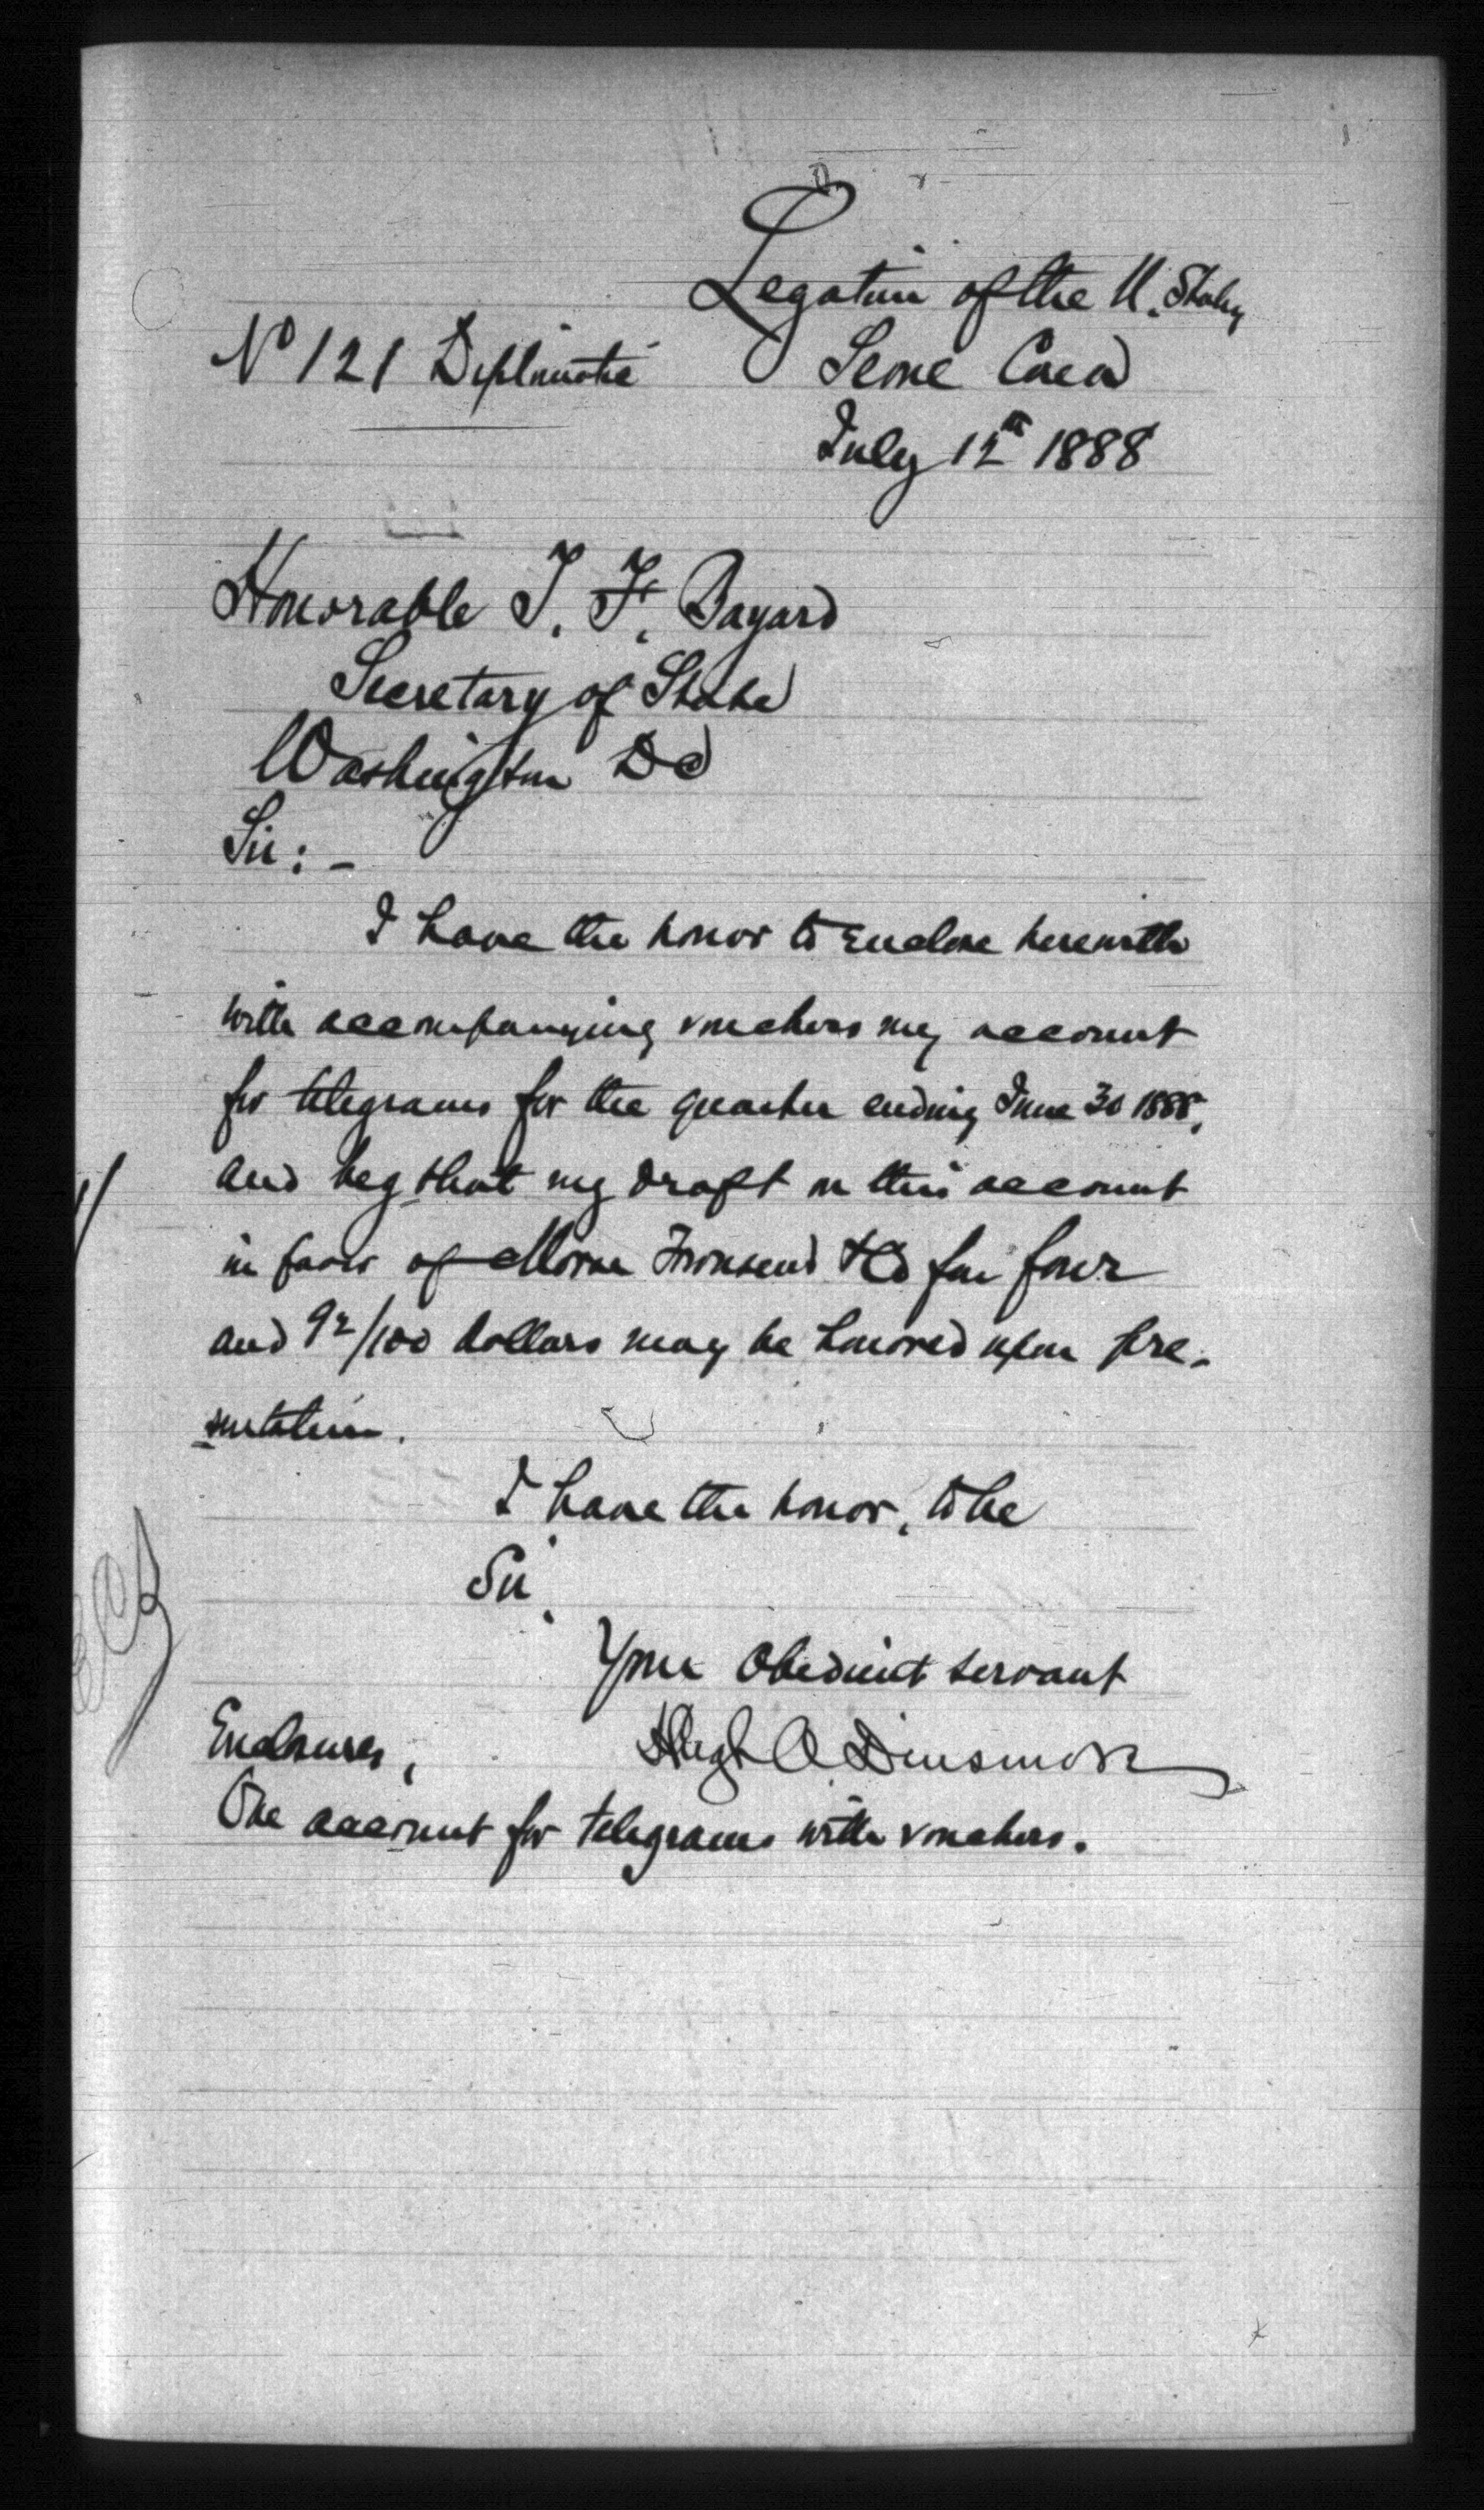 Legation of the U. States
No 121 Diplomatic
Seoul Corea
July 12th 1888
Honorable T. F. Bayard
Secretary of State
Washington DC
Sir: -
I have the honor to enclose herewith
with accompanying vouchers my account
for telegrams for the quarter ending June 30 1888,
and beg that my draft on this account
in favor of Morse Townsend & Co for four
and 92/100 dollars may be honored upon pre-
sentation.
I have the honor, to be
Sir,
Your Obedient servant
Hugh A Dinsmore
Enclosures,
One account for telegrams with vouchers.